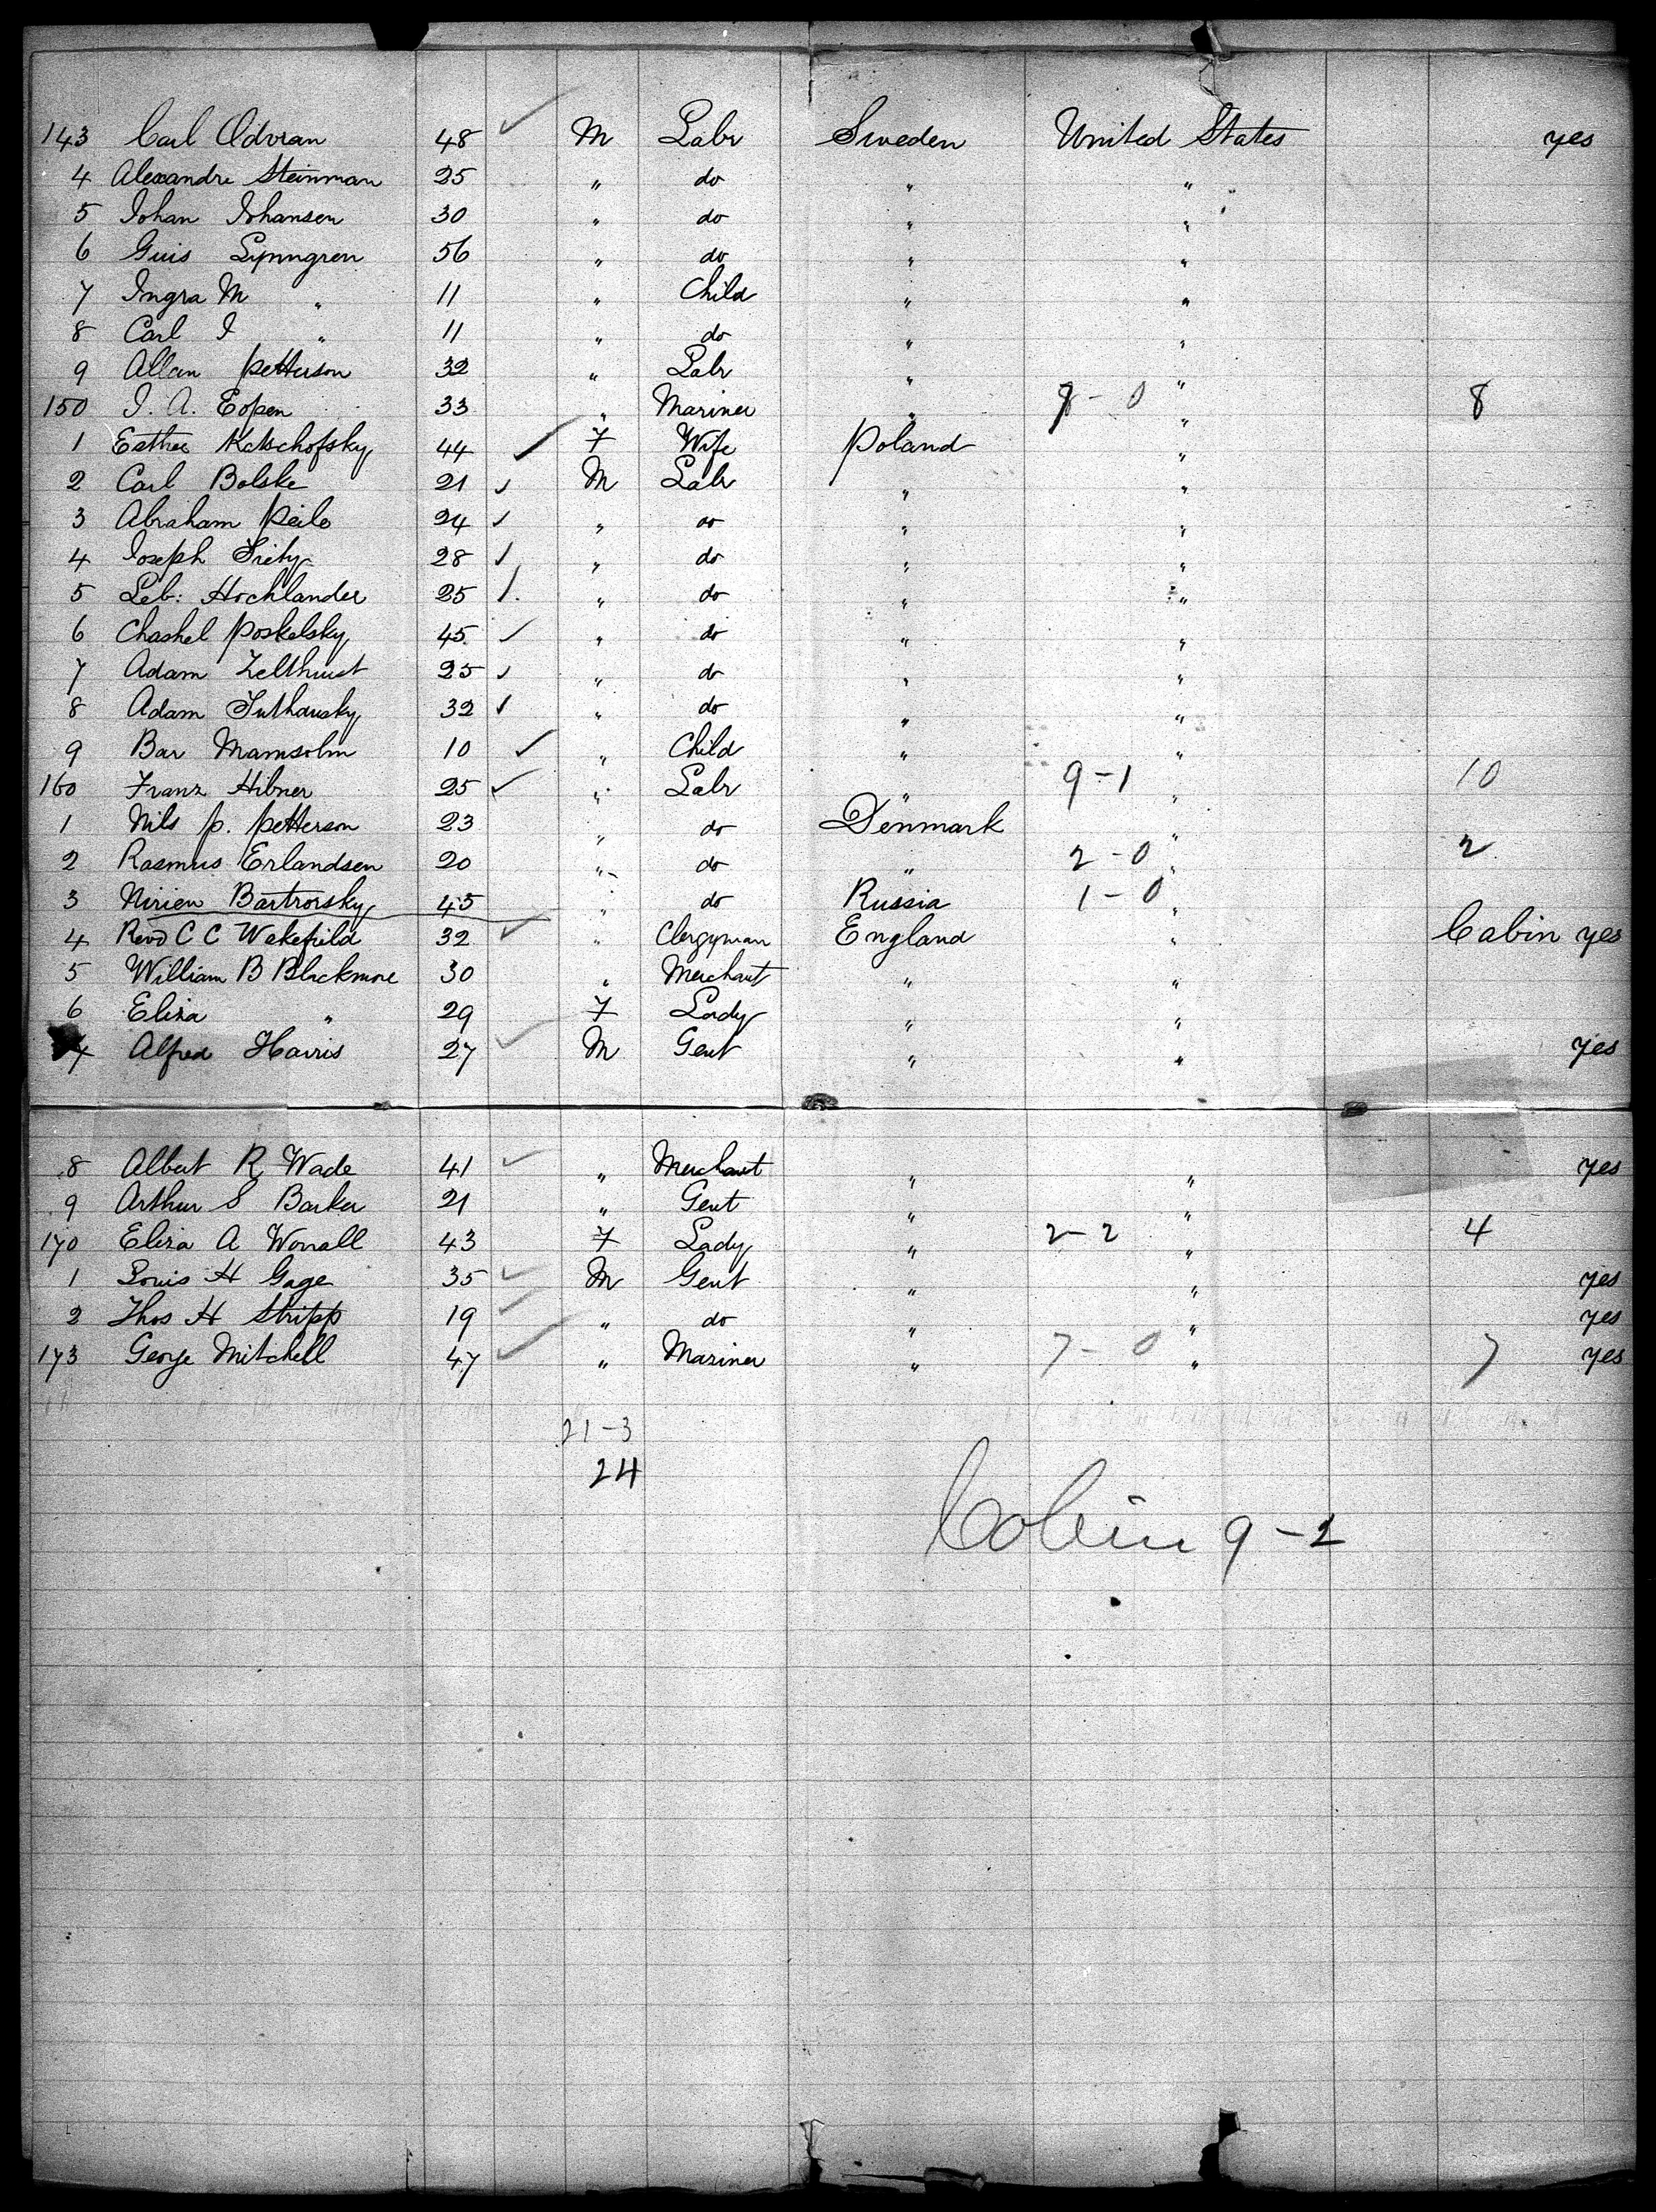 143 Carl Odvran 48 M Labr Sweden United States yes
4 Alexandre Steinman 25 " do " "
5 Johan Johansen 30 " do " "
6 Guis Lynngren 56 " do " "
7 Ingra M " 11 " Child " "
8 Carl I " 11 " do " "
9 Allan Petterson 32 " Labr " "
150 I. A. Eopen 33 " Mariner " 8-0 " 8
1 Esther Katschofsky 44 F Wife Poland "
2 Carl Bolske 21 M Labr " "
3 Abraham Peile 24 " do " "
4 Joseph 28 " do " "
5 Leb: Hochlander 25 " do " "
6 Chashel Poskelsky 45 " do " "
7 Adam 25 " do " "
8 Adam Suthausky 32 " do " "
9 Bar Mamsolm 10 " Child " "
160 Franz Hibner 25 " Labr " 9-1 " 10
1 Nils P. Petterson 23 " do Denmark "
2 Rasmus Erlandsen 20 " do " 2-0 " 2
3 Nirien Bartrorsky 45 " do Russia 1-0 "
4 Revd C C Wakefield 32 " Clergyman England " Cabin yes
5 William B Blackmore 30 " Merchant " "
6 Eliza " 29 F Lady " "
7 Alfred Harris 27 M Gent " " yes
8 Albert R Wade 41 " Merchant " " yes
9 Arthur S Barker 21 " Gent " "
170 Eliza A Worrall 43 F Lady " 2-2 " 4
1 Louis H Gage 35 M Gent " " yes
2 Thos H Stripp 19 " do " " yes
173 George Mitchell 47 " Mariner " 7-0 " 7 yes
21-3
24
Cabin 9-2